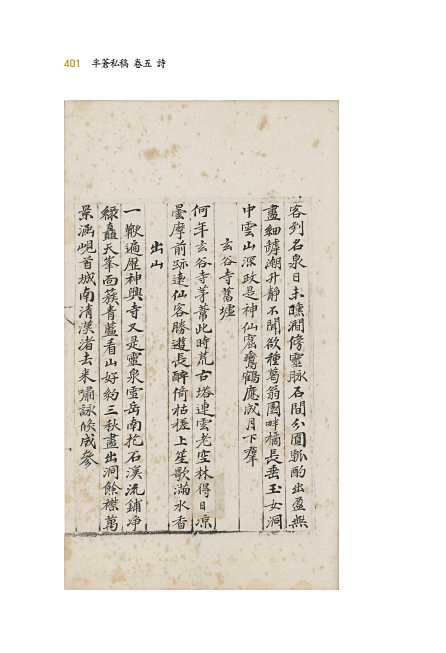 401 半蒼私稿 卷五 詩
客列名泉日未曛澗傍靈脉石間分圓斟酌出盈無
盡細罅潮升靜不聞欲種葛翁園畔橘長垂玉女洞
中雲山深政是神仙窟鸞鶴應成月下群
玄谷寺舊墟
何年玄谷寺茅蓽此時荒古塔連雲老空林得日凉
曇摩前跡遠仙客勝遊長醉倚枯槎上笙歌滿水香
出山
一鞭遍歷神興寺又是靈泉雲岳南抱石溪流鋪凈
綠矗天峯面簇青藍看山好約三秋盡出洞餘襟萬
景涵峴首城南清漢渚去來嘯詠倏成參